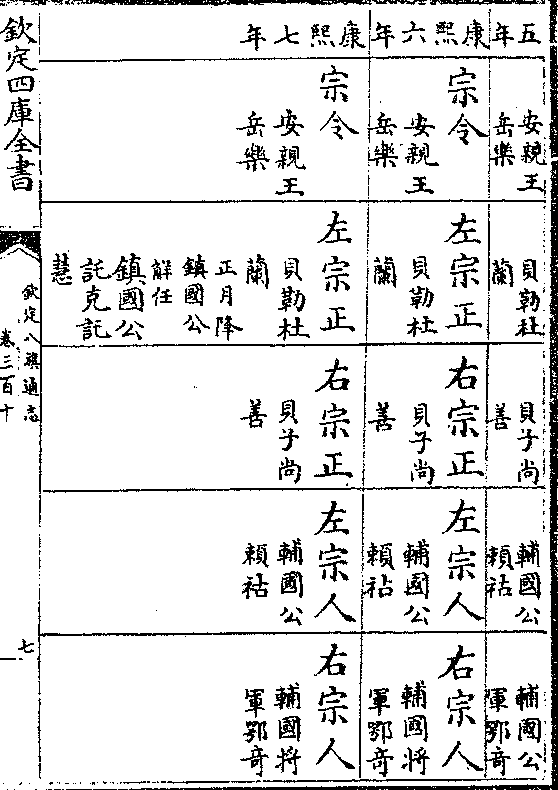 五年
安親王
岳樂
貝勒杜
蘭
貝子尚
善
輔國公
賴祜
輔國公
軍鄂竒
康熙六年
宗令
安親王
岳樂
左宗正
貝勒杜
蘭
右宗正
貝子尚
善
左宗人
輔國公
賴祜
右宗人
輔國將
軍鄂竒
康熙七年
宗令
安親王
岳樂
左宗正
貝勒杜
蘭
正月降
鎮國公
觧任
鎮國公
託克託
慧
右宗正
貝子尚
善
左宗人
輔國公
賴祜
右宗人
輔國將
軍鄂竒
欽定四庫全書
欽定八旗通志
卷三百十
七